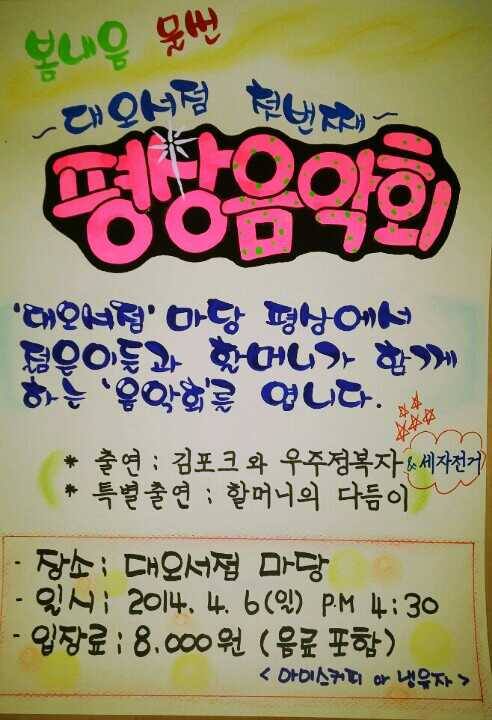 봄내음 물씬
~대오서점 첫번째~
평상음악회
'대오서점' 마당 평상에서
젊은이들과 할머니가 함께
하는 '음악회'를 엽니다.
* 출연 : 김포크와 우주정복자 & 세자전거
* 특별출연 : 할머니의 다듬이
- 장소 : 대오서점 마당
- 일시 : 2014. 4. 6(일) P.M 4:30
- 입장료 : 8.000원 (음료 포함)
< 아이스커피 or 냉유자 >